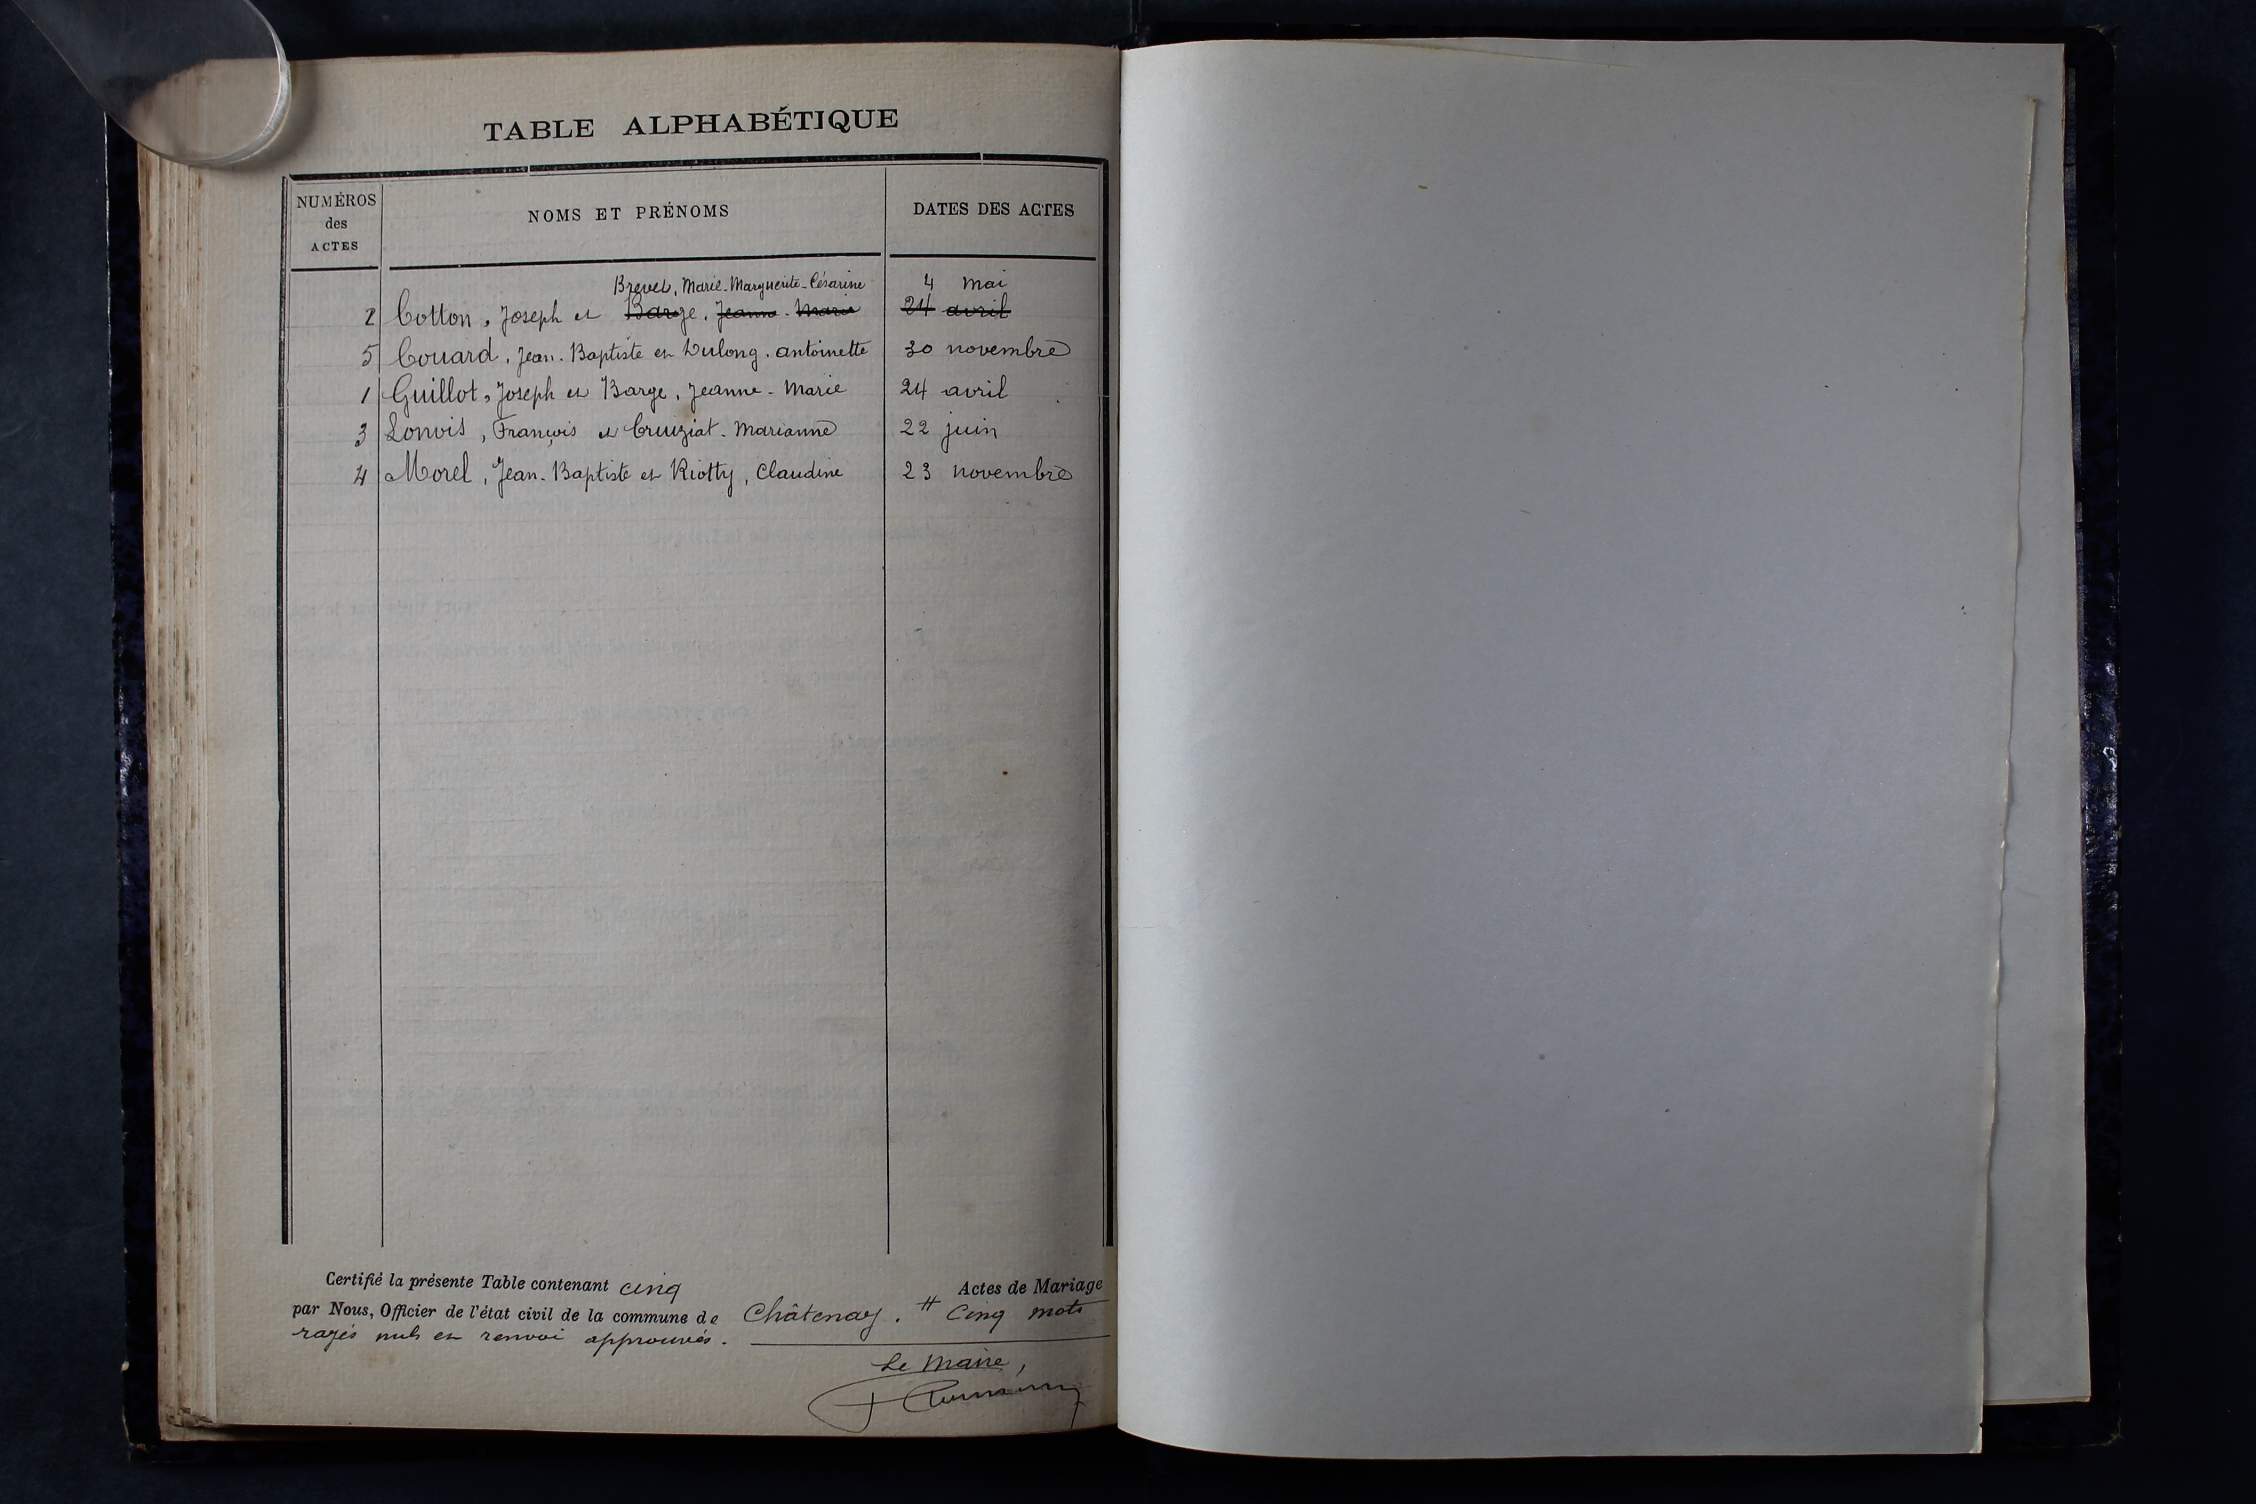 TABLE ALPHABÉTIQUE
NUMÉROS
des
ACTES
NOMS ET PRÉNOMS
DATES DES ACTES
Brevet, Marie-Marguerite-Césarine 4 mai
2 Cotton, Joseph et Barge, Jeanne-Marie 24 avril
5 Couard, Jean-Baptiste et Dulong, antoinette 30 novembre
1 Guillot, Joseph et Barge, Jeanne-Marie 24 avril
3 Lonvis, François et Cruiziat-Marianne 22 juin
4 Morel, Jean-Baptiste et Riotty, Claudine 23 novembre
Certifié la présente Table contenant cinq Actes de Mariage
par Nous, Officier de l'état civil de la commune de Châtenay. # Cinq mots
rayés nuls et renvoi approuvés.
Le Maire,